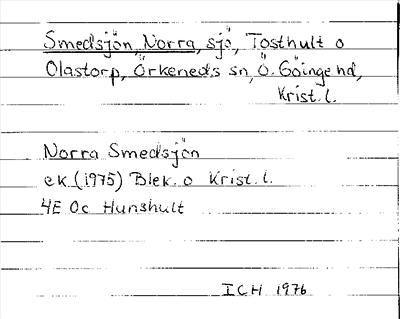 Smedsjön, Norra, sjö, Tosthult o
Olastorp, Örkeneds sn, Ö. Göinge hd,
Krist. l.
Norra Smedsjön
ek (1975) Blek. o Krist. l.
4E Oc Hunshult
ICH 1976